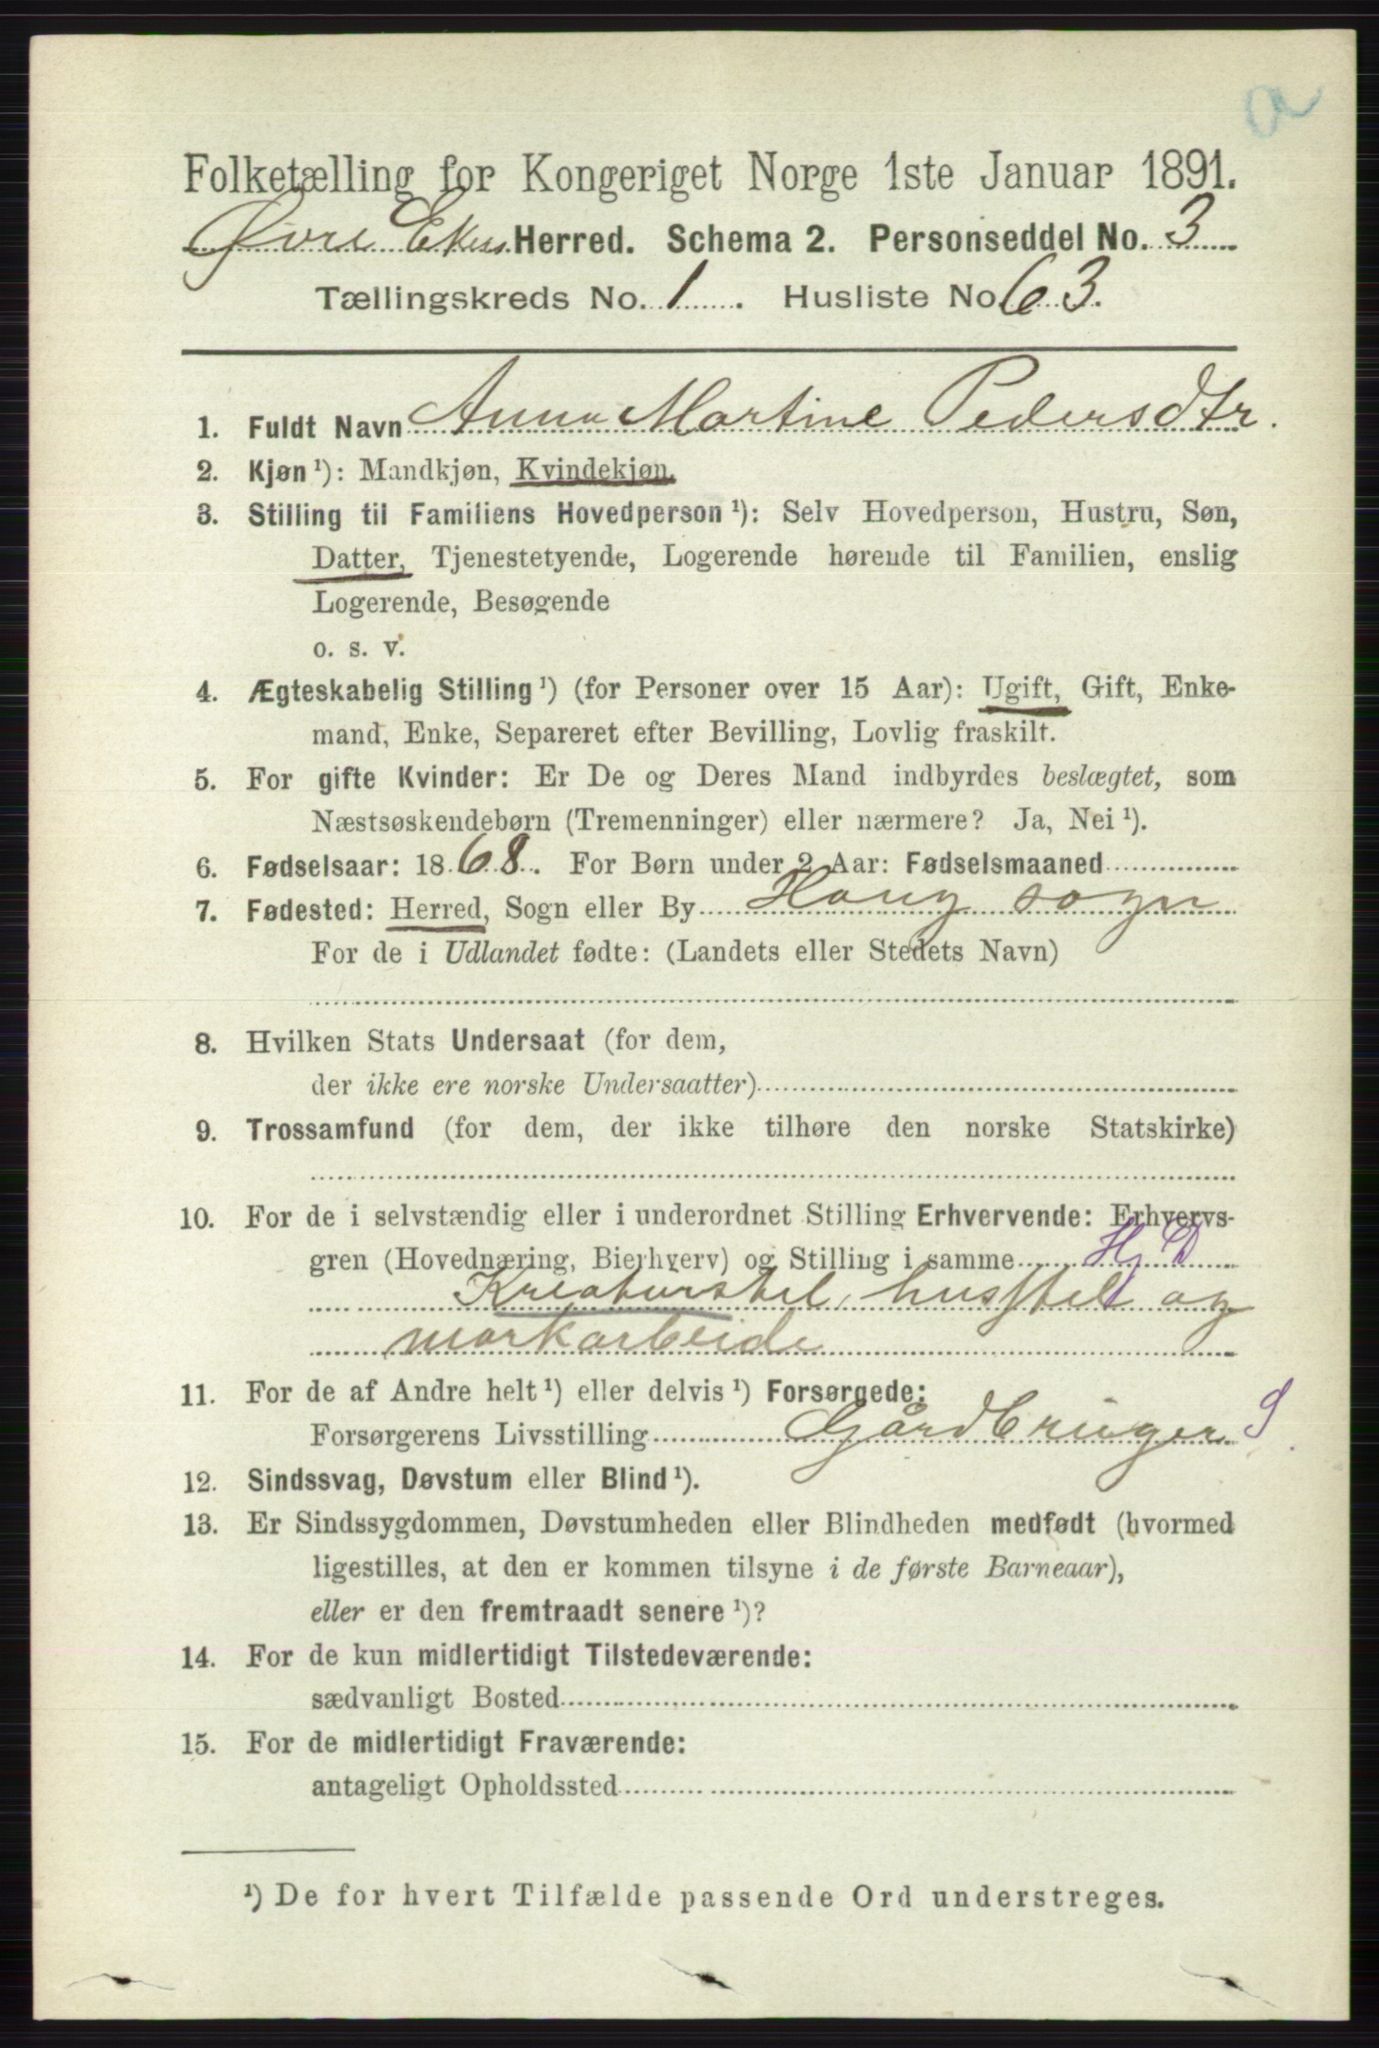 a
Folketælling for Kongeriget Norge 1ste Januar 1891.
Øvre Ekers Herred. Schema 2. Personseddel No. 3
Tællingskreds No. 1. Husliste No. 63.
1. Fuldt Navn Anna Martine Pedersdtr.
2. Kjøn ¹): Mandkjøn, Kvindekjøn.
3. Stilling til Familiens Hovedperson ¹): Selv Hovedperson, Hustru, Søn,
Datter, Tjenestetyende, Logerende hørende til Familien, enslig
Logerende, Besøgende
o. s. v.
4. Ægteskabelig Stilling ¹) (for Personer over 15 Aar): Ugift, Gift, Enke-
mand, Enke, Separeret efter Bevilling, Lovlig fraskilt.
5. For gifte Kvinder: Er De og Deres Mand indbyrdes beslægtet, som
Næstsøskendebørn (Tremenninger) eller nærmere? Ja, Nei ¹).
6. Fødselsaar: 1868. For Børn under 2 Aar: Fødselsmaaned
7. Fødested: Herred, Sogn eller By Haug sogn
For de i Udlandet fødte: (Landets eller Stedets Navn)
8. Hvilken Stats Undersaat (for dem,
der ikke ere norske Undersaatter)
9. Trossamfund (for dem, der ikke tilhøre den norske Statskirke)
10. For de i selvstændig eller i underordnet Stilling Erhvervende: Erhvervs-
gren (Hovednæring, Bierhverv) og Stilling i samme Hj D
Kreaturstel, husstel og
markarbeide
11. For de af Andre helt ¹) eller delvis ¹) Forsørgede:
Forsørgerens Livsstilling Gårdbruger S
12. Sindssvag, Døvstum eller Blind ¹).
13. Er Sindssygdommen, Døvstumheden eller Blindheden medfødt (hvormed
ligestilles, at den er kommen tilsyne i de første Barneaar),
eller er den fremtraadt senere ¹)?
14. For de kun midlertidigt Tilstedeværende:
sædvanligt Bosted
15. For de midlertidigt Fraværende:
antageligt Opholdssted
¹) De for hvert Tilfælde passende Ord understreges.